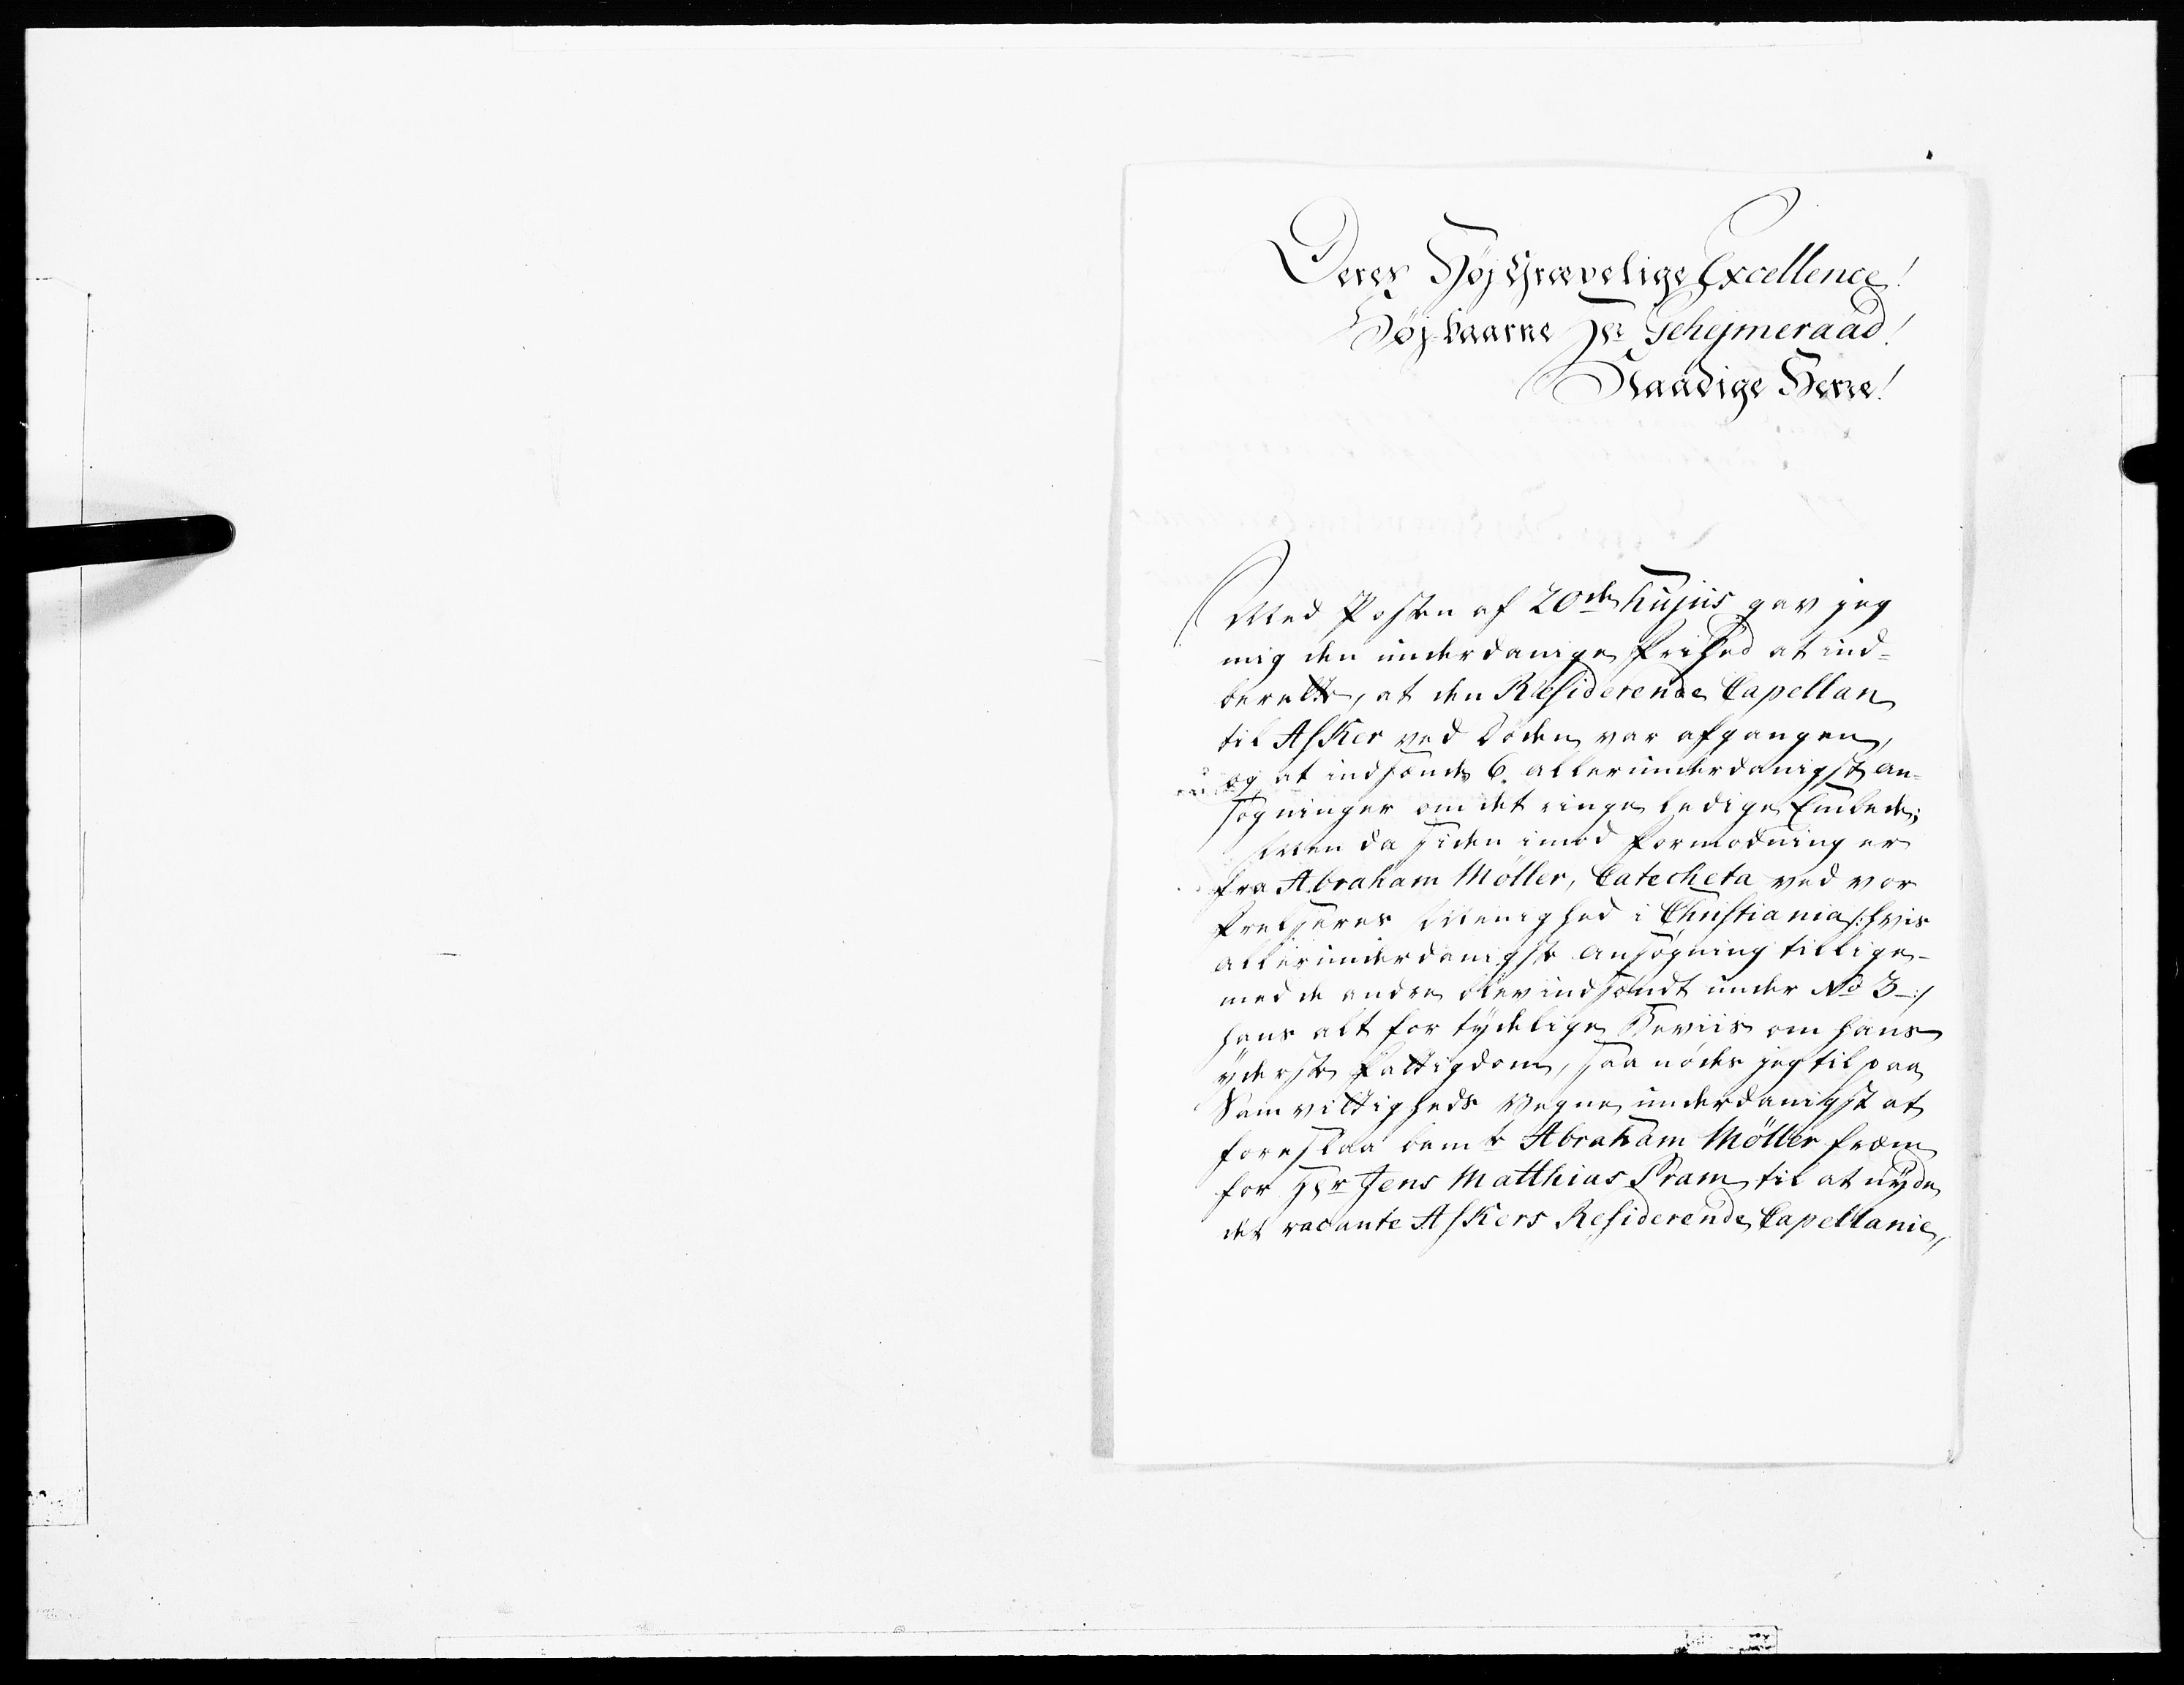 Deres HøjGrævelige Excellence!
Højbaarne Hr Gehejmeraad!
Naadige Herre!
Med Posten af 20de hujus gav jeg
mig den underdanige Frihed at ind-
berette, at den Residerende Capellan
til Asker ved Døden var afgangen,
og at indsende 6. allerunderdanigste an-
søgninger om det ringe ledige Embede;
Men da siden imod Formodning er
fra Abraham Möller, Catecheta ved vor
Frelseres Menighed i Christiania /: hvis
allerunderdanigste ansøgning tillige-
med de andre blev indsendt under No 3 :/
hans alt for tydelige Beviis om hans
yderste Fattigdom, saa nødes jeg til paa
Samvittigheds Vegne underdanigst at
foreslaa bemte Abraham Möller frem
for Hr Jens Matthias Pram til at nyde
det vacante Askers Residerende Capellanie,